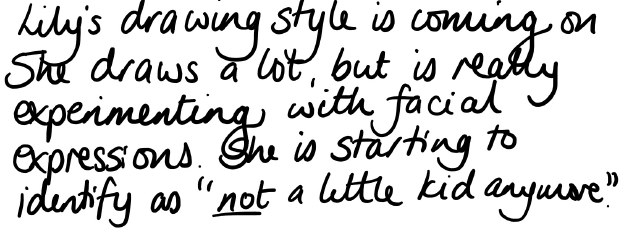 Lily's drawing style is coming on
She draws a lot, but is really
experimenting with facial
expressions. She is starting to
identify as "not a little kid anymore."